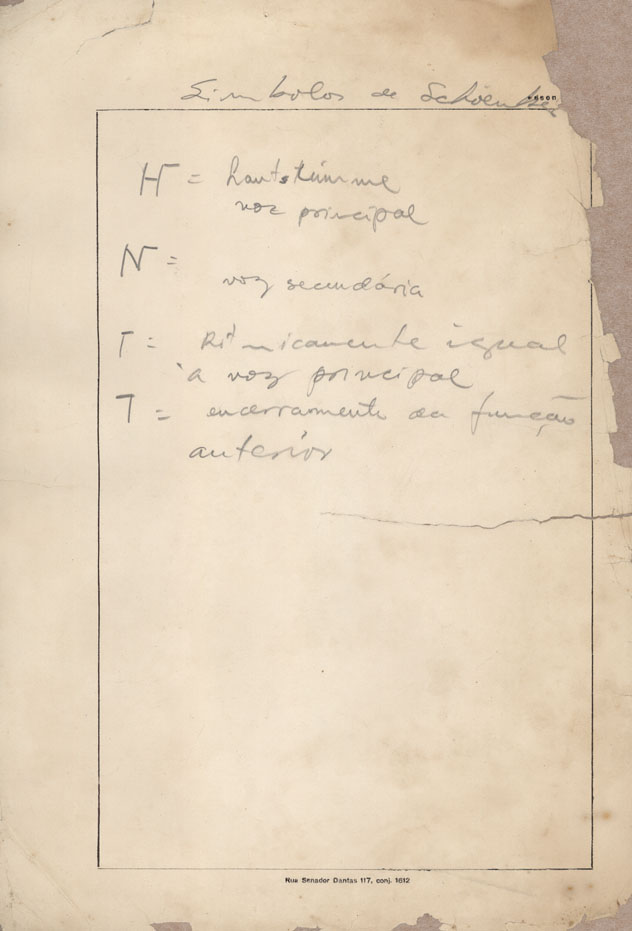 Simbolos de Schoenber
H = hautstimme
voz principal
N =
voz secundária
Γ = Ritmicamente igual
à voz principal
˥ = encerramento da função
anterior
Rua Senador Dantas 117, conj. 1612